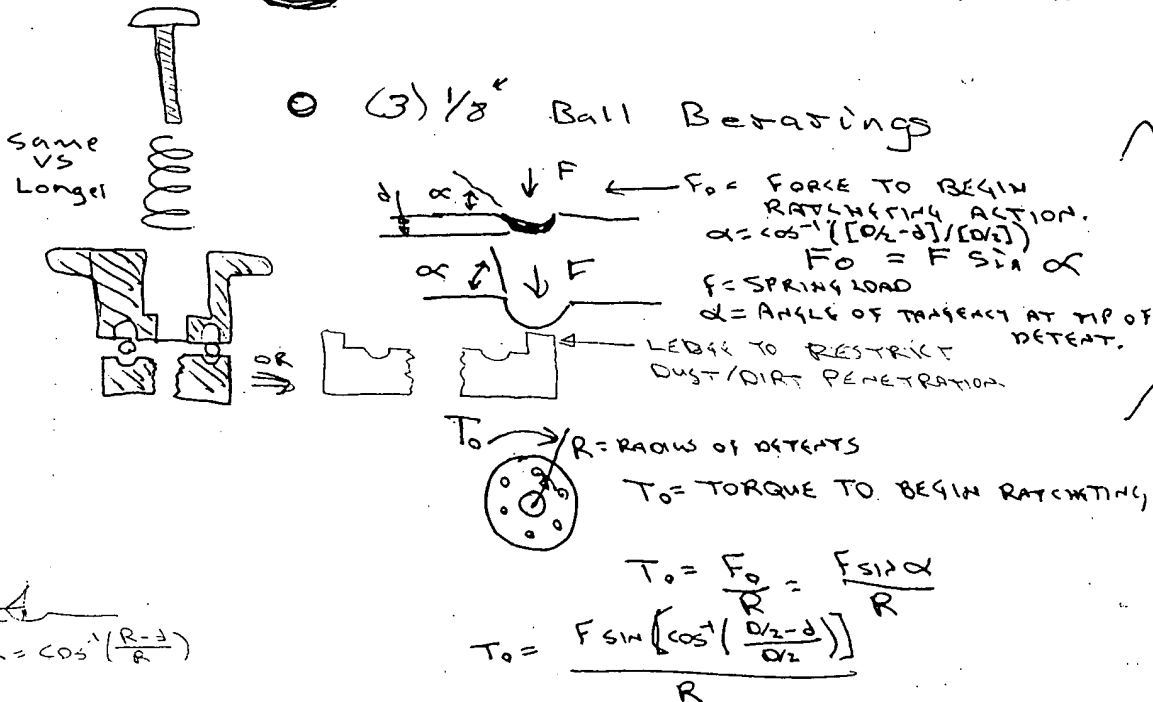 (3) 1/8" Ball Berarings
same
VS
Longer
d α F
F₀ = FORCE TO BEGIN
RATCHETING ACTION.
α = cos⁻¹([D/2-d]/[D/2])
F₀ = F Sin α
α F
F = SPRING LOAD
α = ANGLE OF TANGENCY AT TIP OF
DETENT.
OR
LEDGE TO RESTRICT
DUST/DIRT PENETRATION.
T₀
R = RADIUS OF DETENTS
T₀ = TORQUE TO BEGIN RATCHETING
T₀ = F₀/R = F SIN α/R
= COS⁻¹((R-d)/R)
T₀ = F SIN[COS⁻¹((D/2-d)/(D/2))]/R